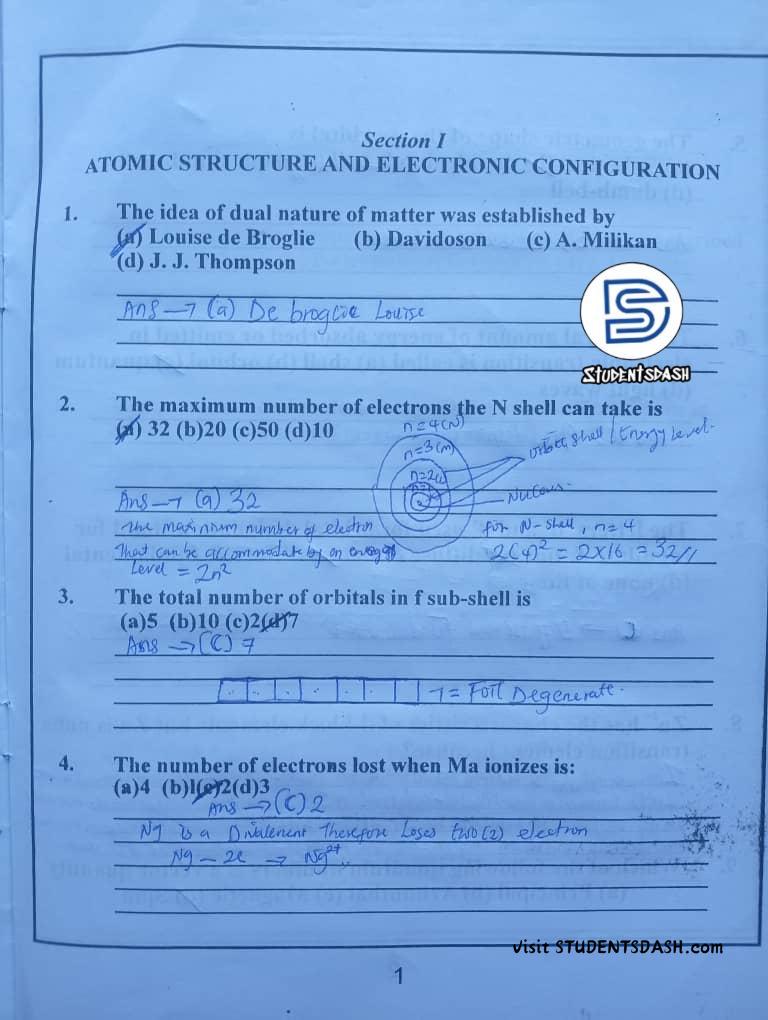 Section I
ATOMIC STRUCTURE AND ELECTRONIC CONFIGURATION
1. The idea of dual nature of matter was established by
(a) Louise de Broglie (b) Davidoson (c) A. Milikan
(d) J. J. Thompson
Ans → (a) De broglie Louise
STUDENTSDASH
2. The maximum number of electrons the N shell can take is
(a) 32 (b)20 (c)50 (d)10
n=4(N)
n=3(M)
n=2(L)
orbit, shell / Energy level.
Nucleus
Ans → (a) 32
The maximum number of electron
That can be accommodate by an energy
level = 2n²
for N-shell, n=4
2(4)² = 2×16 = 32//
3. The total number of orbitals in f sub-shell is
(a)5 (b)10 (c)2(d)7
Ans → (C) 7
7 = Fort Degenerate.
4. The number of electrons lost when Ma ionizes is:
(a)4 (b)1(c)2(d)3
Ans → (C) 2
Mg is a Divalenent Therefore Loses two(2) electron
Mg – 2e → Mg²⁺
Visit STUDENTSDASH.com
1